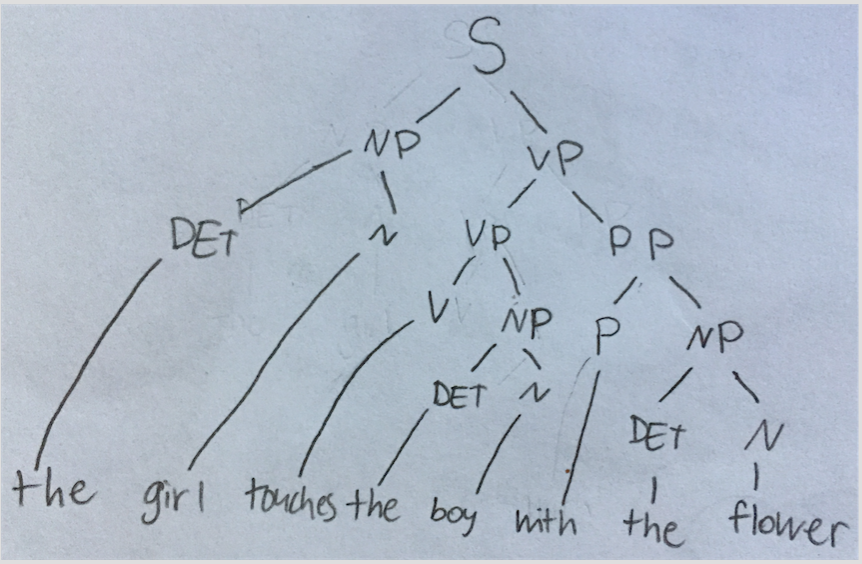 S
NP VP
DET N VP PP
V NP P NP
DET N DET N
the girl touches the boy with the flower